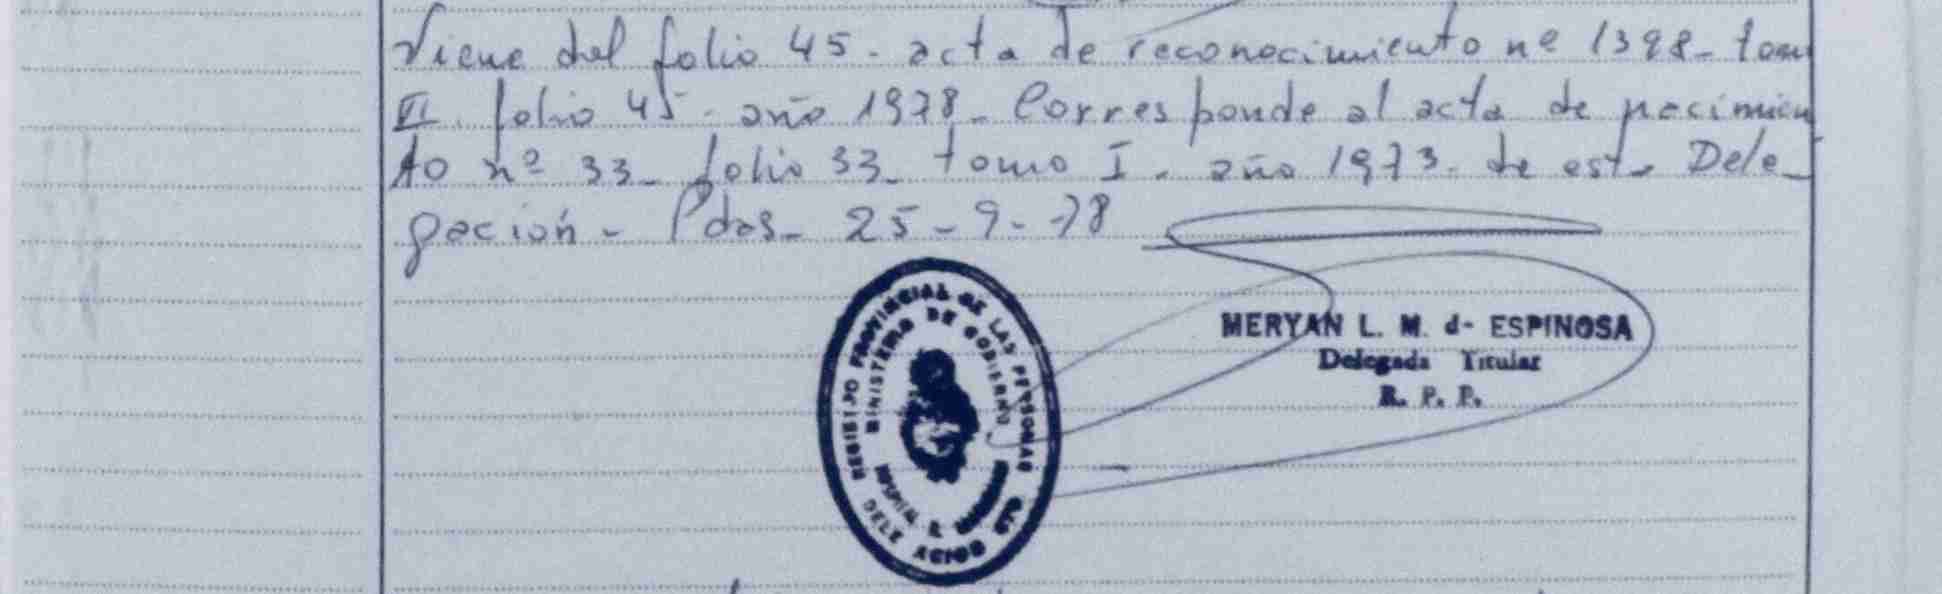 Viene del folio 45 - acta de reconocimiento nº 1398 - tomo
II. folio 45 - año 1978 - Corresponde al acta de nacimien
to nº 33 - folio 33 - tomo I - año 1973 - de esta Dele-
gación - Pdas - 25 - 9 - 78
MERYAN L. M. d- ESPINOSA
Delegada Titular
R. P. P.
REGISTRO PROVINCIAL DE LAS PERSONAS
MINISTERIO DE GOBIERNO
DELEGACION